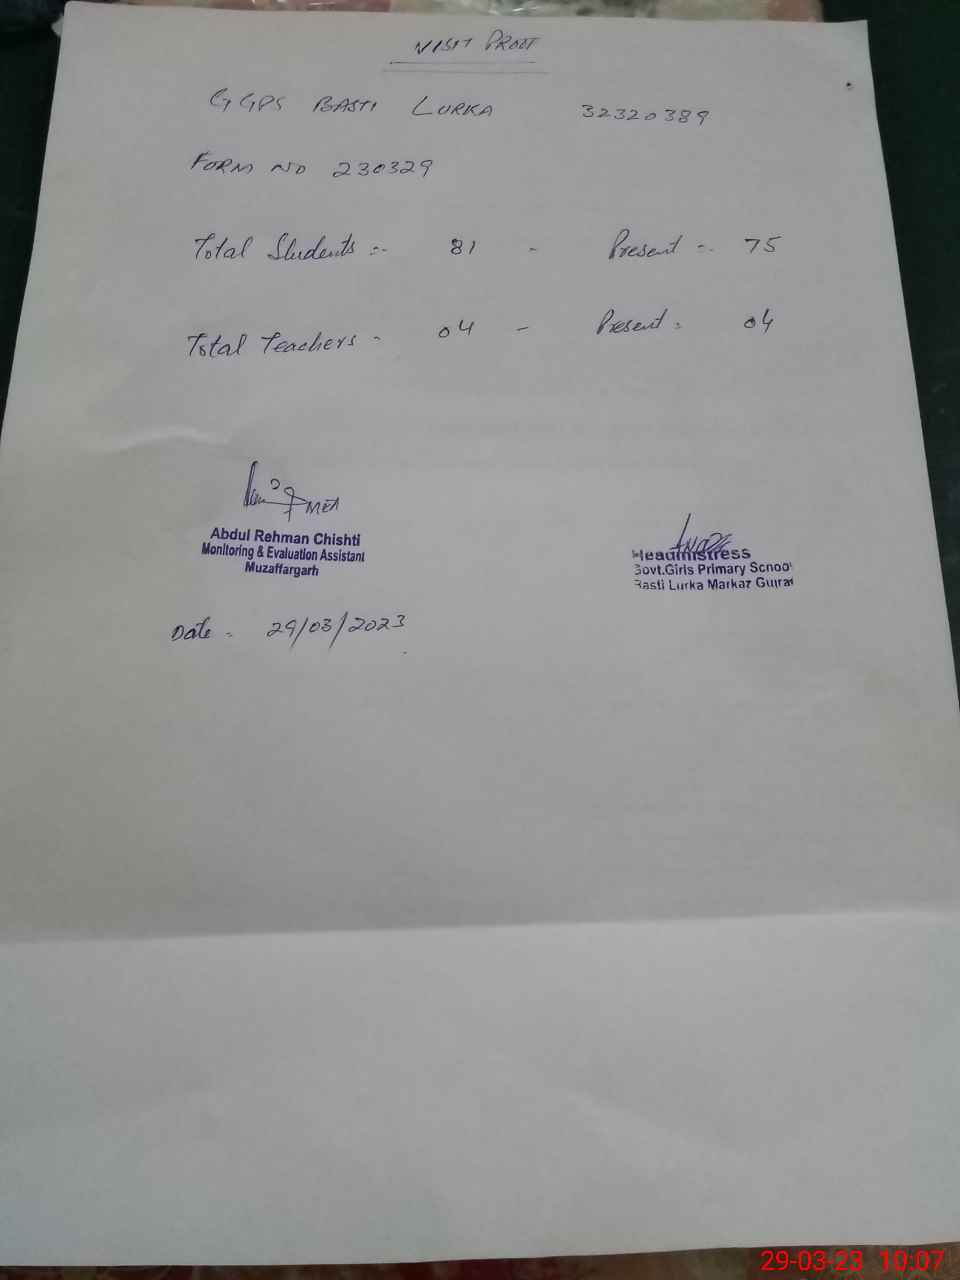 VISIT PROOF
GGPS BASTI LURKA 32320389
FORM NO 230329
Total Students :- 81 - Present :- 75
Total Teachers - 04 - Present : 04
MEA
Abdul Rehman Chishti
Monitoring & Evaluation Assistant
Muzaffargarh
Headmistress
Govt.Girls Primary School
Basti Lurka Markaz Gujrat
Date - 29/03/2023
29-03-23 10:07